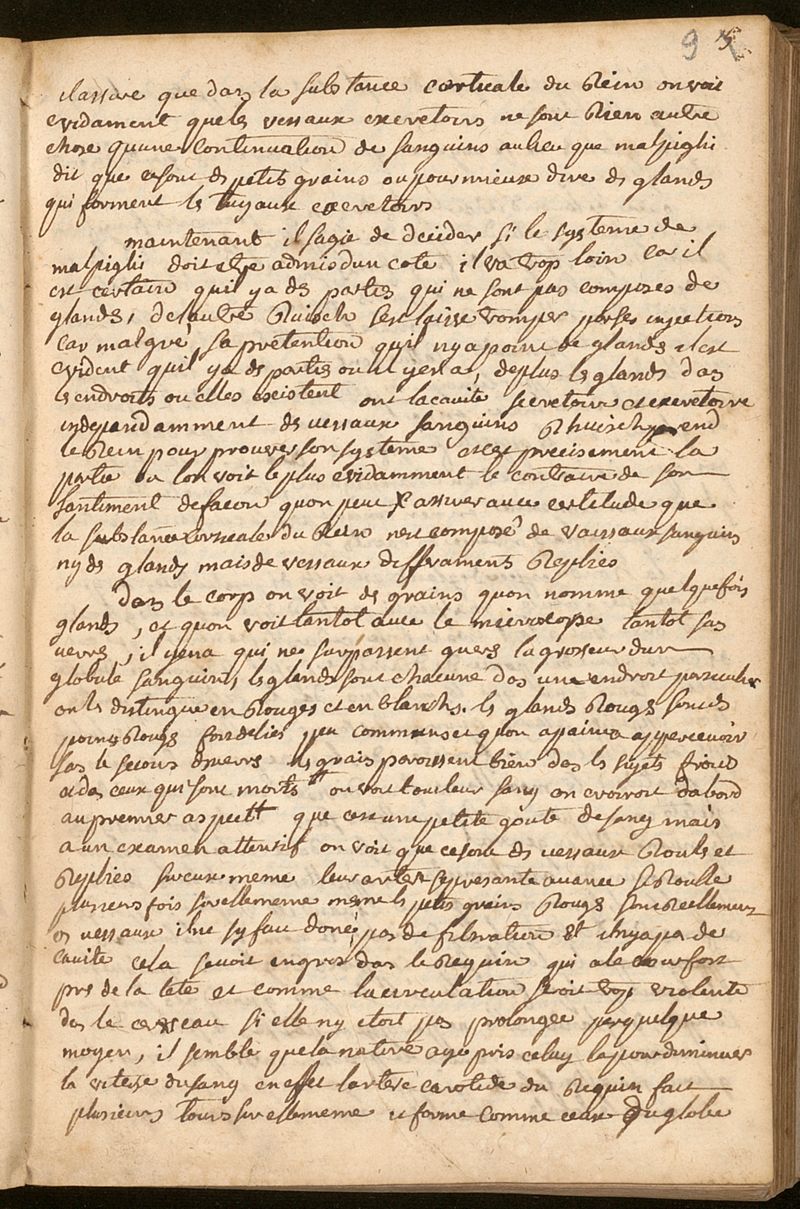 9 5
il assure que dans la substance corticale du Rein on voit
evidament que les vessaux excretoirs ne sont Rien autre
chose quune continuation de sanguins aulieu que malpighi
dit que ce sont des petits grains ou pour mieux dire des glands
qui forment les tuyaux excretoirs
maintenant il sagit de decider si le systeme de
malpighi doit etre admis dun coté il va trop loin car il
est certain quil ya des parties qui ne sont pas composes de
glandes, de lautre Ruisch sest laisse tromper par ses injections
car malgré sa prétention quil nya point de glandes il est
evident quil ya des parties ou il yena, deplus les glands dans
les endroits ou elles existent ont la cavité secretoire et excretoire
independamment des vessaux sanguins Rhuisch prend
le Rein pour prouver son systeme et cest precisement la
partie ou lon voit le plus evidamment le contraire de son
santiment defacon quon peut assurer avec certitude que
la substance corticale du Rein nest composé de vaissaux sanguin
ny de glands mais de vessaux differament Replies
Dans le corp on voit des grains quon nomme quelquefois
glands, et quon voit tantot avec le microscope tantot sans
verres, il yena qui ne surpassent guers la grosseur dun
globule sanguin, les glands sont chacune dans une endroit particulier
on les distingue en Rouges et en blanchs. les glands Rougs sont des
points Rougs fort delies peu communs et quon apaine a appercevoir
sans le secours de verres ils paroissent bien dans les sujets froid
et dans ceux qui sont morts ou tout leur sang on croiroit dabord
au premier aspect que cest une petite goute de sang mais
a un examen attentif on voit que ce sont des vessaux Roulés et
Replies sur eux meme leur artere se presante avance se Roulle
plusieurs fois sur elle meme meme les petits grains Rougs sont Reellement
des vessaux il ne sy fait donc pas de filtration et il nya pas de
cavité cela se voit en gros dans le Requin qui a le cœur fort
prs de la tete et comme la circulation seroit trop violente
dans le cerveau si elle ny etoit pas prolongée par quelque
moyen, il semble que la nature aye pris celuy la pour diminuer
la vitesse du sang en effet lartere carotide du Requin fait
plusieurs tours sur ellemême et forme comme ceux du globe